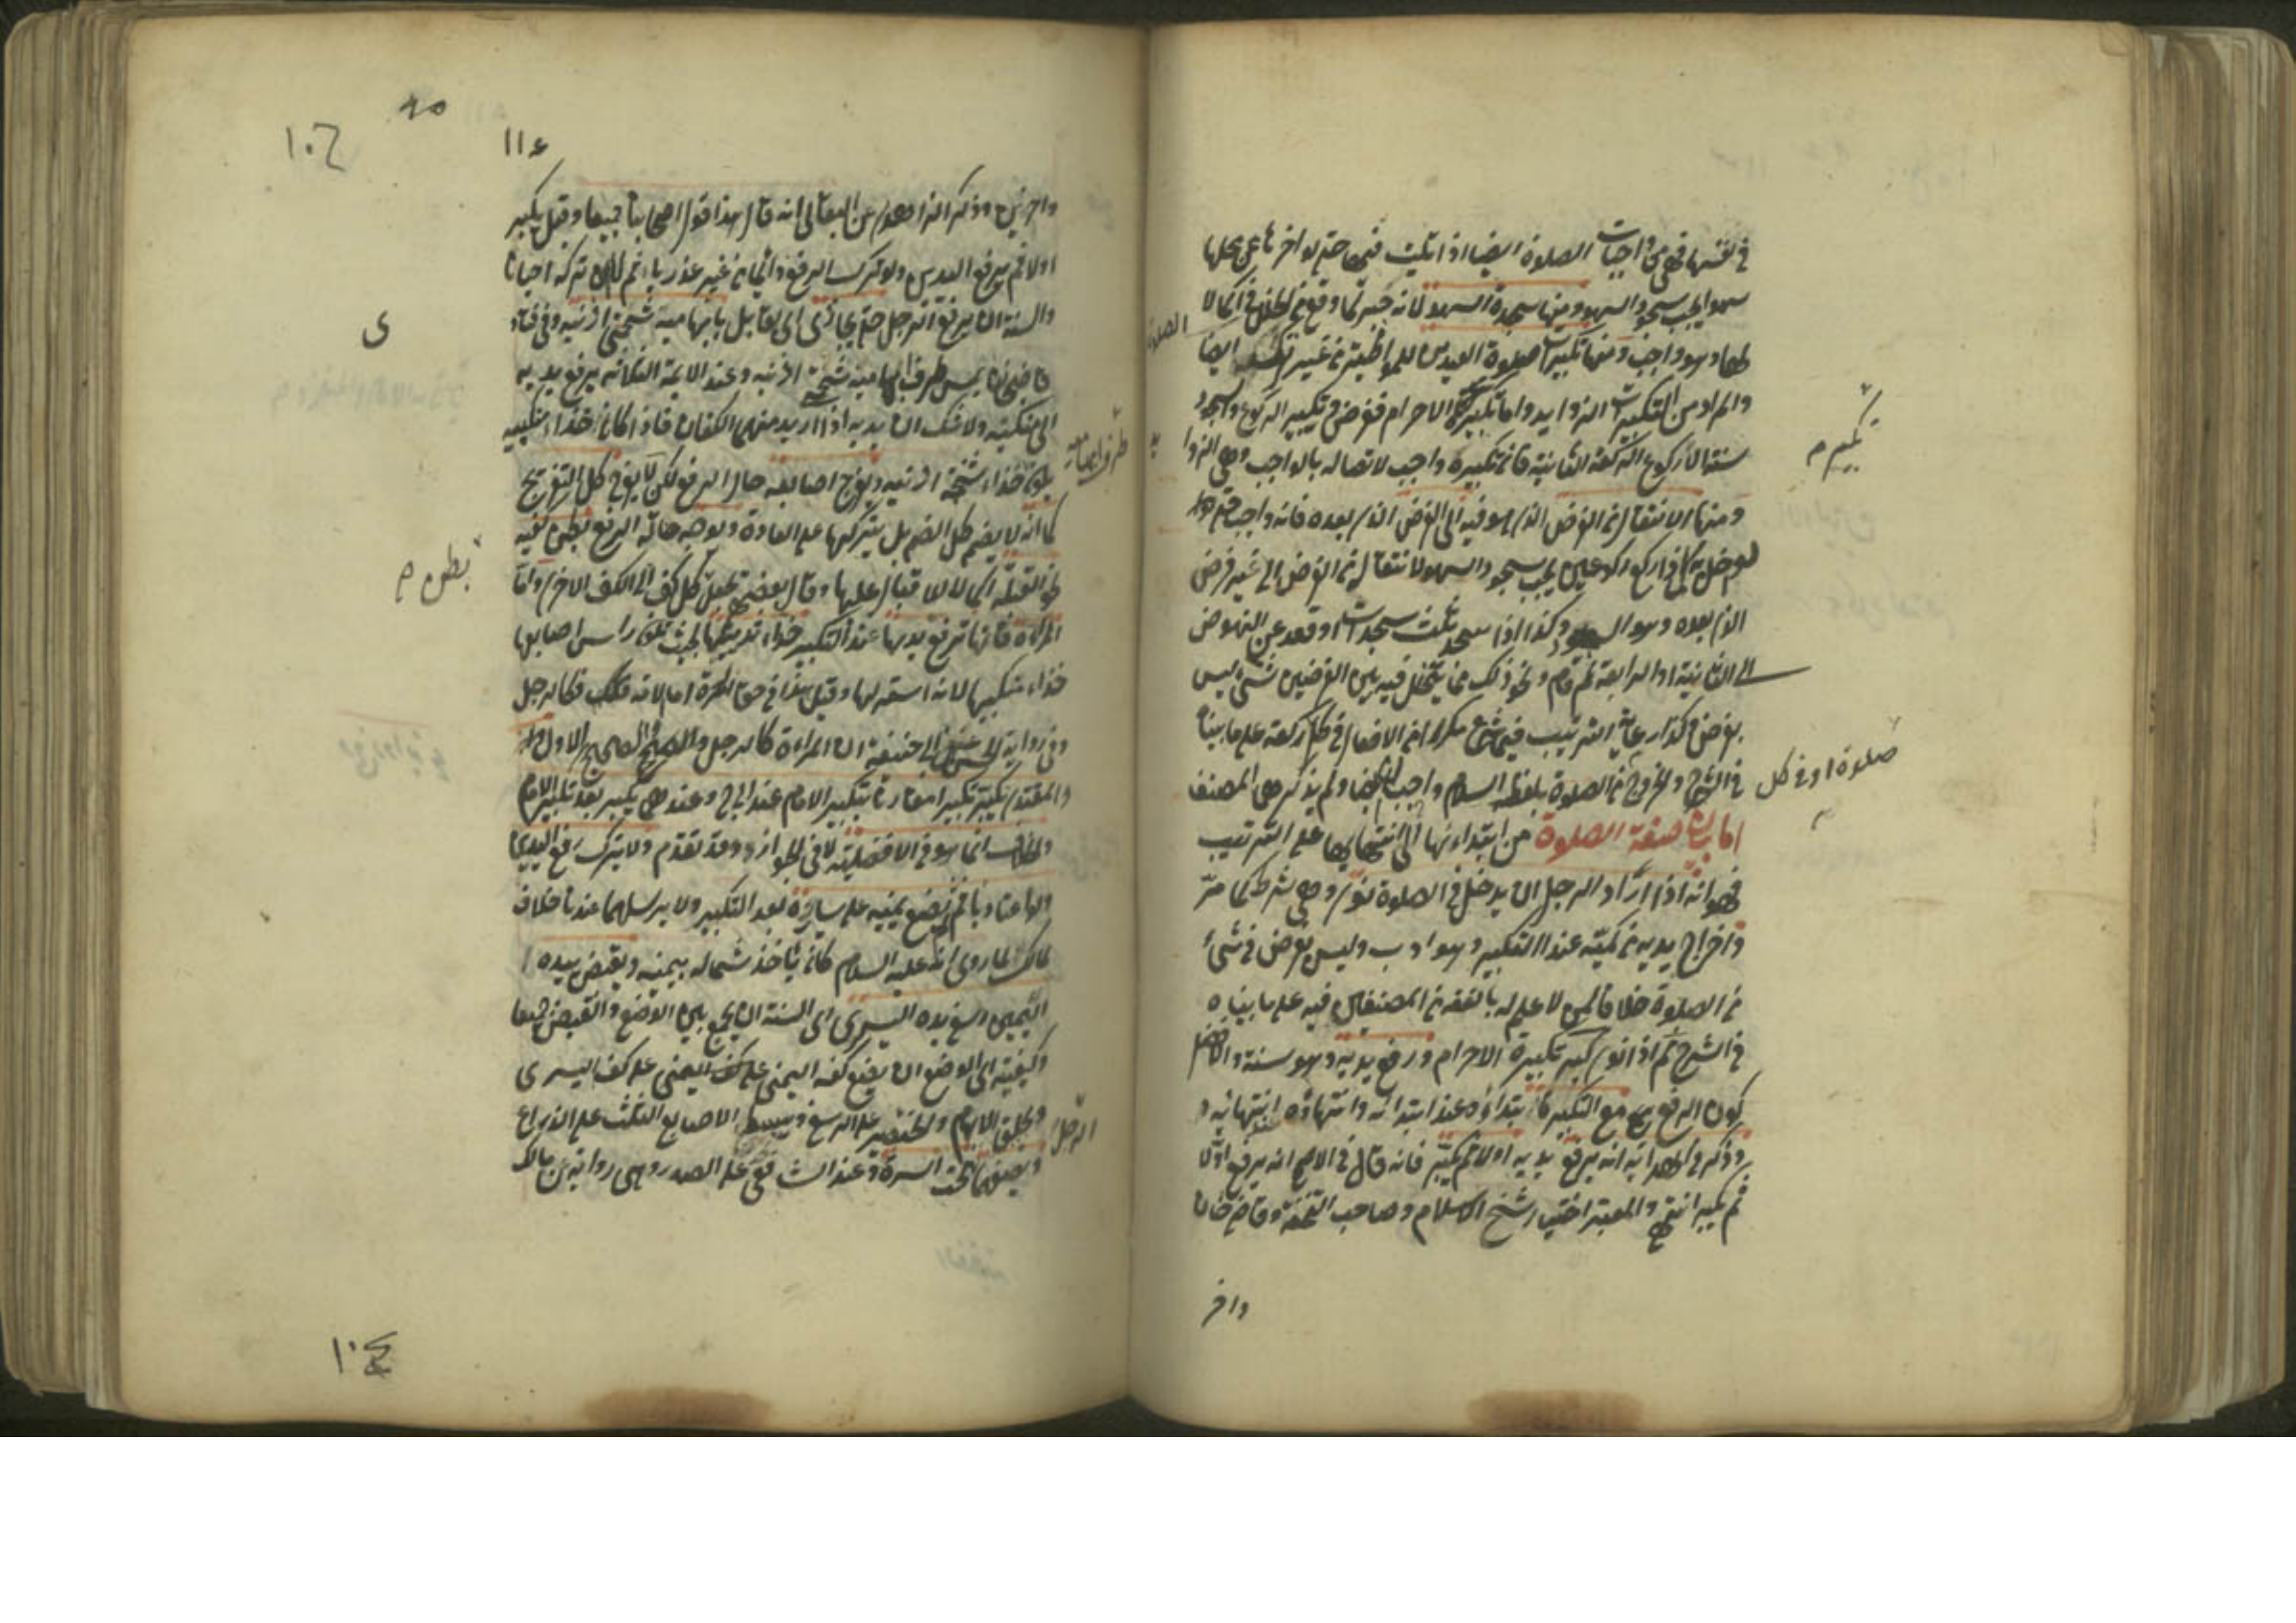 في نفسها فهي من واجبات الصلوة ايضا اذا تليت فيها حتى لو اخرها عن محلها
سهوا يجب سجود السهو ومنها سجدة السهو لانه جبر لما وقع من الخلل في اكمالا
لها وهو واجب ومنها تكبيرات صلوة العيدين للمواظبة من غير ترك ايضا
والمراد من التكبيرات الزوايد واما تكبيرة الاحرام ففرض وتكبير الركوع والسجود
سنة الا ركوع الركعة الثانية فان تكبيره واجب لاتصاله بالواجب وهي الزوا
يد
ومنها الانتقال من الفرض الذي هو فيه الى الفرض الذي بعده فانه واجب حتى
لو اخل به كما اذا ركع ركوعين يجب سجود السهو لانتقاله من الفرض الى غير فرض
الذي بعده وهو السجود وكذا اذا سجد ثلث سجدات او قعد عن النهوض
الى الثانية او الرابعة ثم قام ونحو ذلك مما يتخلل فيه بين الفرضين شيء ليس
بفرض وكذا رعاية الترتيب فيما شرع مكررا من الافعال في كل ركعة على ما بينا
في الشرح والخروج من الصلوة بلفظ السلام واجب ايضا ولم يذكرهما المصنف
اما بيان صفة الصلوة من ابتداءها الى انتهايها على الترتيب
فهو انه اذا اراد الرجل ان يدخل في الصلوة نوى وهي شرط كما مر
واخراج يديه من كميه عند التكبير وهو ادب وليس بفرض في شيء
من الصلوة خلافا لمن لا علم له بالفقه من المصنفين فيه على ما بيناه
في الشرح ثم اذا نوى كبر تكبيرة الاحرام ورفع يديه وهو سنة والافضل
كون الرفع مع التكبير فابتداؤه عند ابتدائه وانتهاؤه عند انتهائه و
ذكر في الهداية انه يرفع يديه اولا ثم يكبر فانه قال في الاصح انه يرفع اولا
ثم يكبر انتهى والمعتبر اختيار شيخ الاسلام وصاحب التحفة وقاضيخان
واخر
الصلوة
تكبيره
صلوة او في كل
١١٤
واخرين وذكر الزاهدي عن البقالي انه قال هذا قول اصحابنا جميعا وقيل يكبر
اولا ثم يرفع اليدين ولو ترك الرفع دائما من غير عذر ياثم لا ان تركه احيانا
والسنة ان يرفع الرجل حتى يحاذي اي يقابل بابهاميه شحمتي اذنيه وفي فتاو
ى
قاضيخان يمس طرف ابهاميه شحمة اذنيه وعند الايمة الثلاثة يرفع يديه
الى منكبيه ولا شك ان يديه اذا اريد منهما الكفان فاذا كانا حذاء منكبيه
يكون حذاء شحمة اذنيه ويفرج اصابعه حال الرفع لكن لا يفرج كل التفريج
كما انه لا يضم كل الضم بل يتركها على العادة ويوجه حالة الرفع بطن كفيه
نحو القبلة اكمالا للاقبال عليها وقال بعضهم يجعل كل كف الى الكف الاخرى واما
المراة فانها ترفع يديها عند التكبير حذاء ثدييها بحيث تكون راس اصابعها
حذاء منكبيها لانه استر لها وقيل هذا في حق الحرة اما الامة فكالرجل
وفي رواية الحسن عن ابي حنيفة ان المراة كالرجل والصحيح الاول
والمقتدي يكبر تكبيرا مقارنا بتكبير الامام عند ابي ح وعندهما يكبر بعد تكبير الامام
والخلاف انما هو في الافضلية لا في الجواز وقد تقدم ولا يترك رفع اليدين
ولو اعتاد ياثم ثم يضع يمينه على يساره بعد التكبير ولا يرسلهما عندنا خلافا
لمالك لما روي انه عليه السلام كان ياخذ شماله بيمينه ويقبض بيده ا
ليمين رسغ يده اليسرى اي السنة ان يجمع بين الوضع والقبض جميعا
وكيفيته اي الوضع ان يضع كفه اليمنى على كف اليسرى
ويحلق الابهام والخنصر على الرسغ ويبسط الاصابع الثلث على الذراع
ويضعهما الرجل تحت السرة وعند الشافعي على الصدر وهي رواية عن مالك
بطن
١٠٤